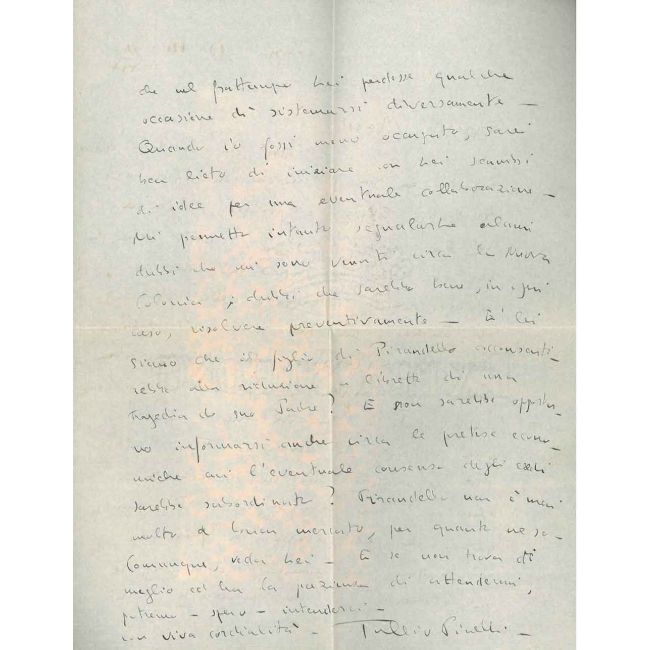 che nel frattempo Lei perdesse qualche
occasione di sistemarsi diversamente —
Quando io fossi meno occupato, sarei
ben lieto di iniziare con Lei scambi
di idee per una eventuale collaborazione —
Mi permetta intanto segnalarLe alcuni
dubbi che mi sono venuti circa la Nuova
Colonia; dubbi che sarebbe bene, in ogni
caso, risolvere preventivamente — È Lei
sicuro che il figlio di Pirandello acconsenti-
rebbe alla riduzione a libretto di una
tragedia di suo Padre? E non sarebbe opportu-
no informarsi anche circa le pretese econo-
miche cui l'eventuale consenso degli eredi
sarebbe subordinato? Pirandello non è mai
molto a buon mercato, per quanto ne so —
Comunque, veda Lei — E se non trova di
meglio ed ha la pazienza di attendermi,
potremo — spero — intenderci —
con viva cordialità — Tullio Pinelli —